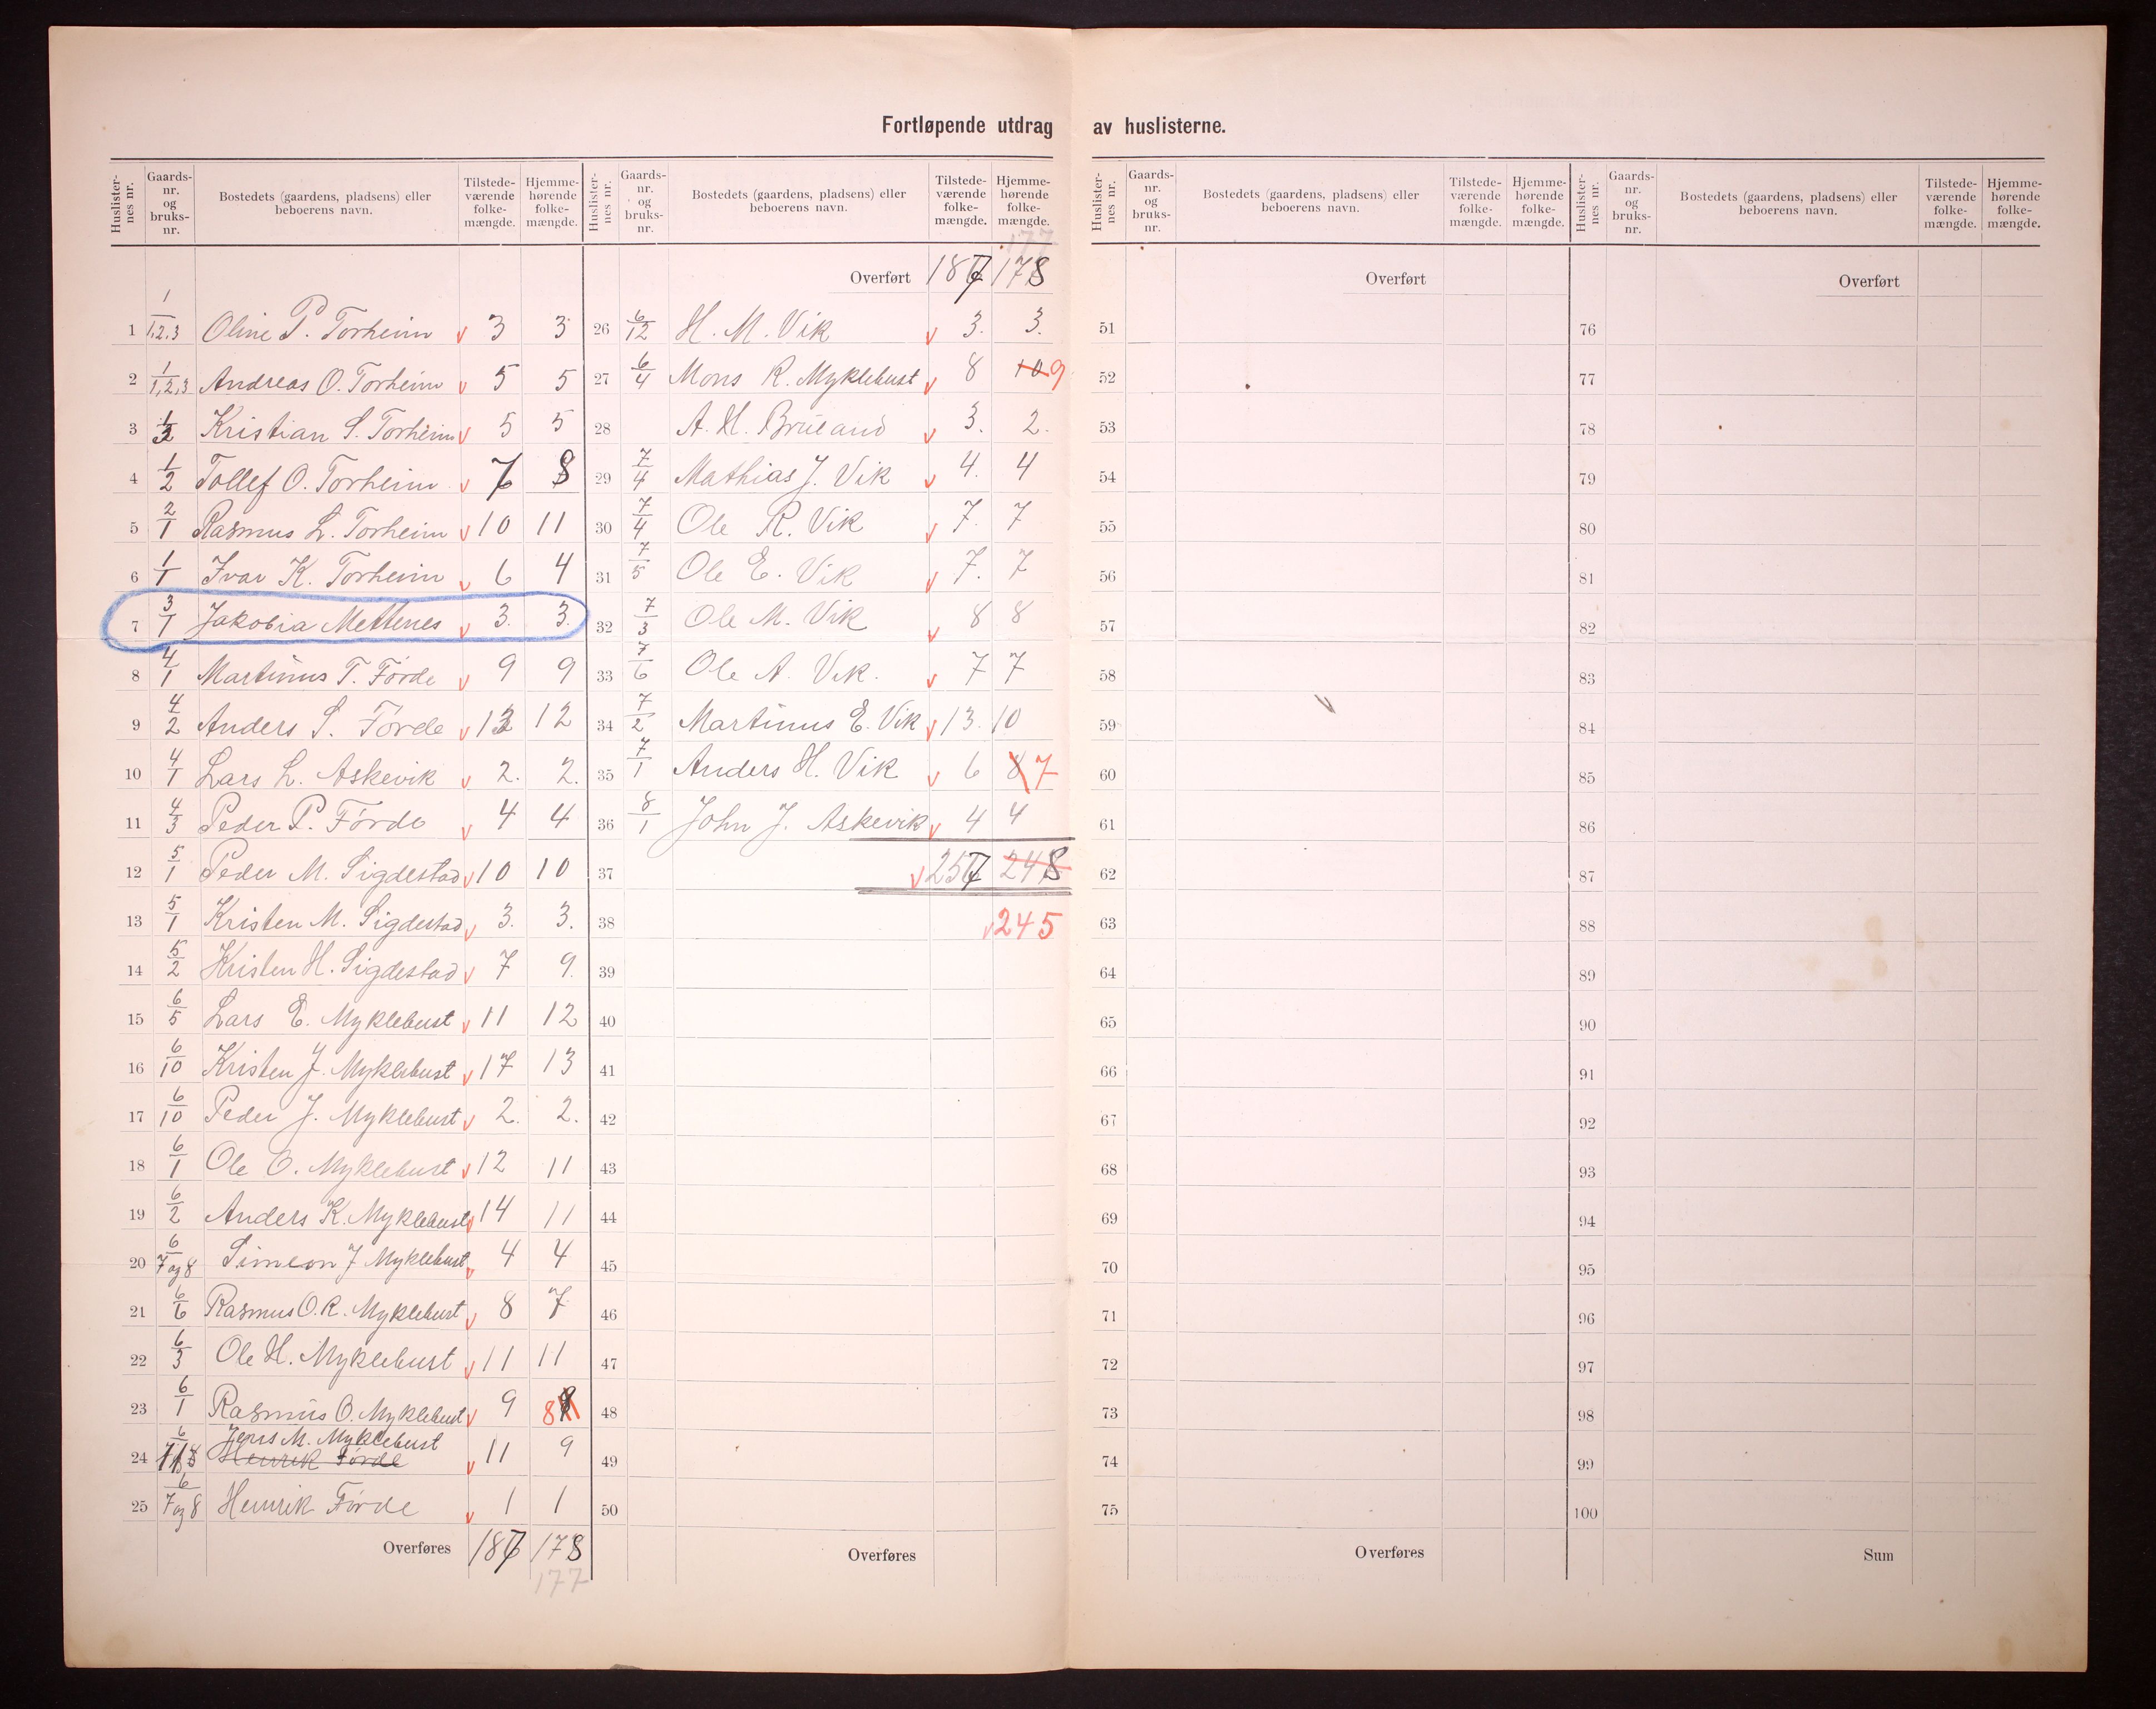 Fortløpende utdrag av huslisterne.
Huslisternes nr. Gaards-nr. og bruks-nr. Bostedets (gaardens, pladsens) eller beboerens navn. Tilstede-værende folke-mængde. Hjemme-hørende folke-mængde.
1 1/1,2,3 Oline P. Torheim v 3 3
2 1/1,2,3 Andreas O. Torheim v 5 5
3 1/3 Kristian S. Torheim v 5 5
4 1/2 Tollef O. Torheim v 7 8
5 2/1 Rasmus L. Torheim v 10 11
6 1/1 Ivar K. Torheim v 6 4
7 3/1 Jakobia Mettenes v 3. 3.
8 4/1 Martinus T. Førde v 9 9
9 4/2 Anders S. Førde v 13 12
10 4/1 Lars L. Askevik v 2. 2.
11 4/3 Peder P. Førde v 4 4
12 5/1 Peder M. Sigdestad v 10 10
13 5/1 Kristen M. Sigdestad v 3. 3.
14 5/2 Kristen H. Sigdestad v 7 9.
15 6/5 Lars E. Myklebust v 11 12
16 6/10 Kristen J. Myklebust v 17 13
17 6/10 Peder J. Myklebust v 2. 2.
18 6/1 Ole O. Myklebust v 12 11
19 6/2 Anders K. Myklebust v 14 11
20 6/7 og 8 Simeon J Myklebust v 4 4
21 6/6 Rasmus O. R. Myklebust v 8 7
22 6/3 Ole H. Myklebust v 11 11
23 6/1 Rasmus O. Myklebust v 9 8
Jens M. Myklebust
24 Henrik Førde v 11 9
25 6/7 og 8 Henrik Førde v 1 1
Overføres 187 178
177
Huslisternes nr. Gaards-nr. og bruks-nr. Bostedets (gaardens, pladsens) eller beboerens navn. Tilstede-værende folke-mængde. Hjemme-hørende folke-mængde.
177
Overført 187 178
26 6/12 H. M. Vik v 3. 3.
27 6/4 Mons R. Myklebust v 8 10 9
28 A. H. Brueland v 3. 2.
29 7/4 Mathias J. Vik v 4. 4
30 7/4 Ole R. Vik v 7. 7
31 7/5 Ole E. Vik v 7. 7
32 7/3 Ole M. Vik v 8 8
33 7/6 Ole A. Vik. v 7 7
34 7/2 Martinus E. Vik v 13. 10
35 7/1 Anders H. Vik v 6 8 7
36 8/1 John J. Askevik v 4 4
37 v 257 248
38 v 245
39
40
41
42
43
44
45
46
47
48
49
50
Overføres
Huslisternes nr. Gaards-nr. og bruks-nr. Bostedets (gaardens, pladsens) eller beboerens navn. Tilstede-værende folke-mængde. Hjemme-hørende folke-mængde.
Overført
51
52
53
54
55
56
57
58
59
60
61
62
63
64
65
66
67
68
69
70
71
72
73
74
75
Overføres
Huslisternes nr. Gaards-nr. og bruks-nr. Bostedets (gaardens, pladsens) eller beboerens navn. Tilstede-værende folke-mængde. Hjemme-hørende folke-mængde.
Overført
76
77
78
79
80
81
82
83
84
85
86
87
88
89
90
91
92
93
94
95
96
97
98
99
100
Sum